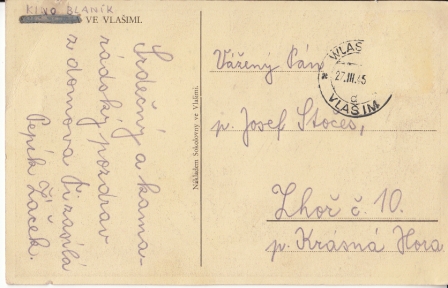 KINO BLANÍK.
VE VLAŠIMI.
Srdečný a kama-
rádský pozdrav
z domova Ti zasílá
Pepík Žáček.
Nákladem Sokolovny ve Vlašimi.
WLAS
27.III.45
VLAŠIM
Vážený Pán
p. Josef Stoces,
Lhoř č. 10.
p. Krásná Hora